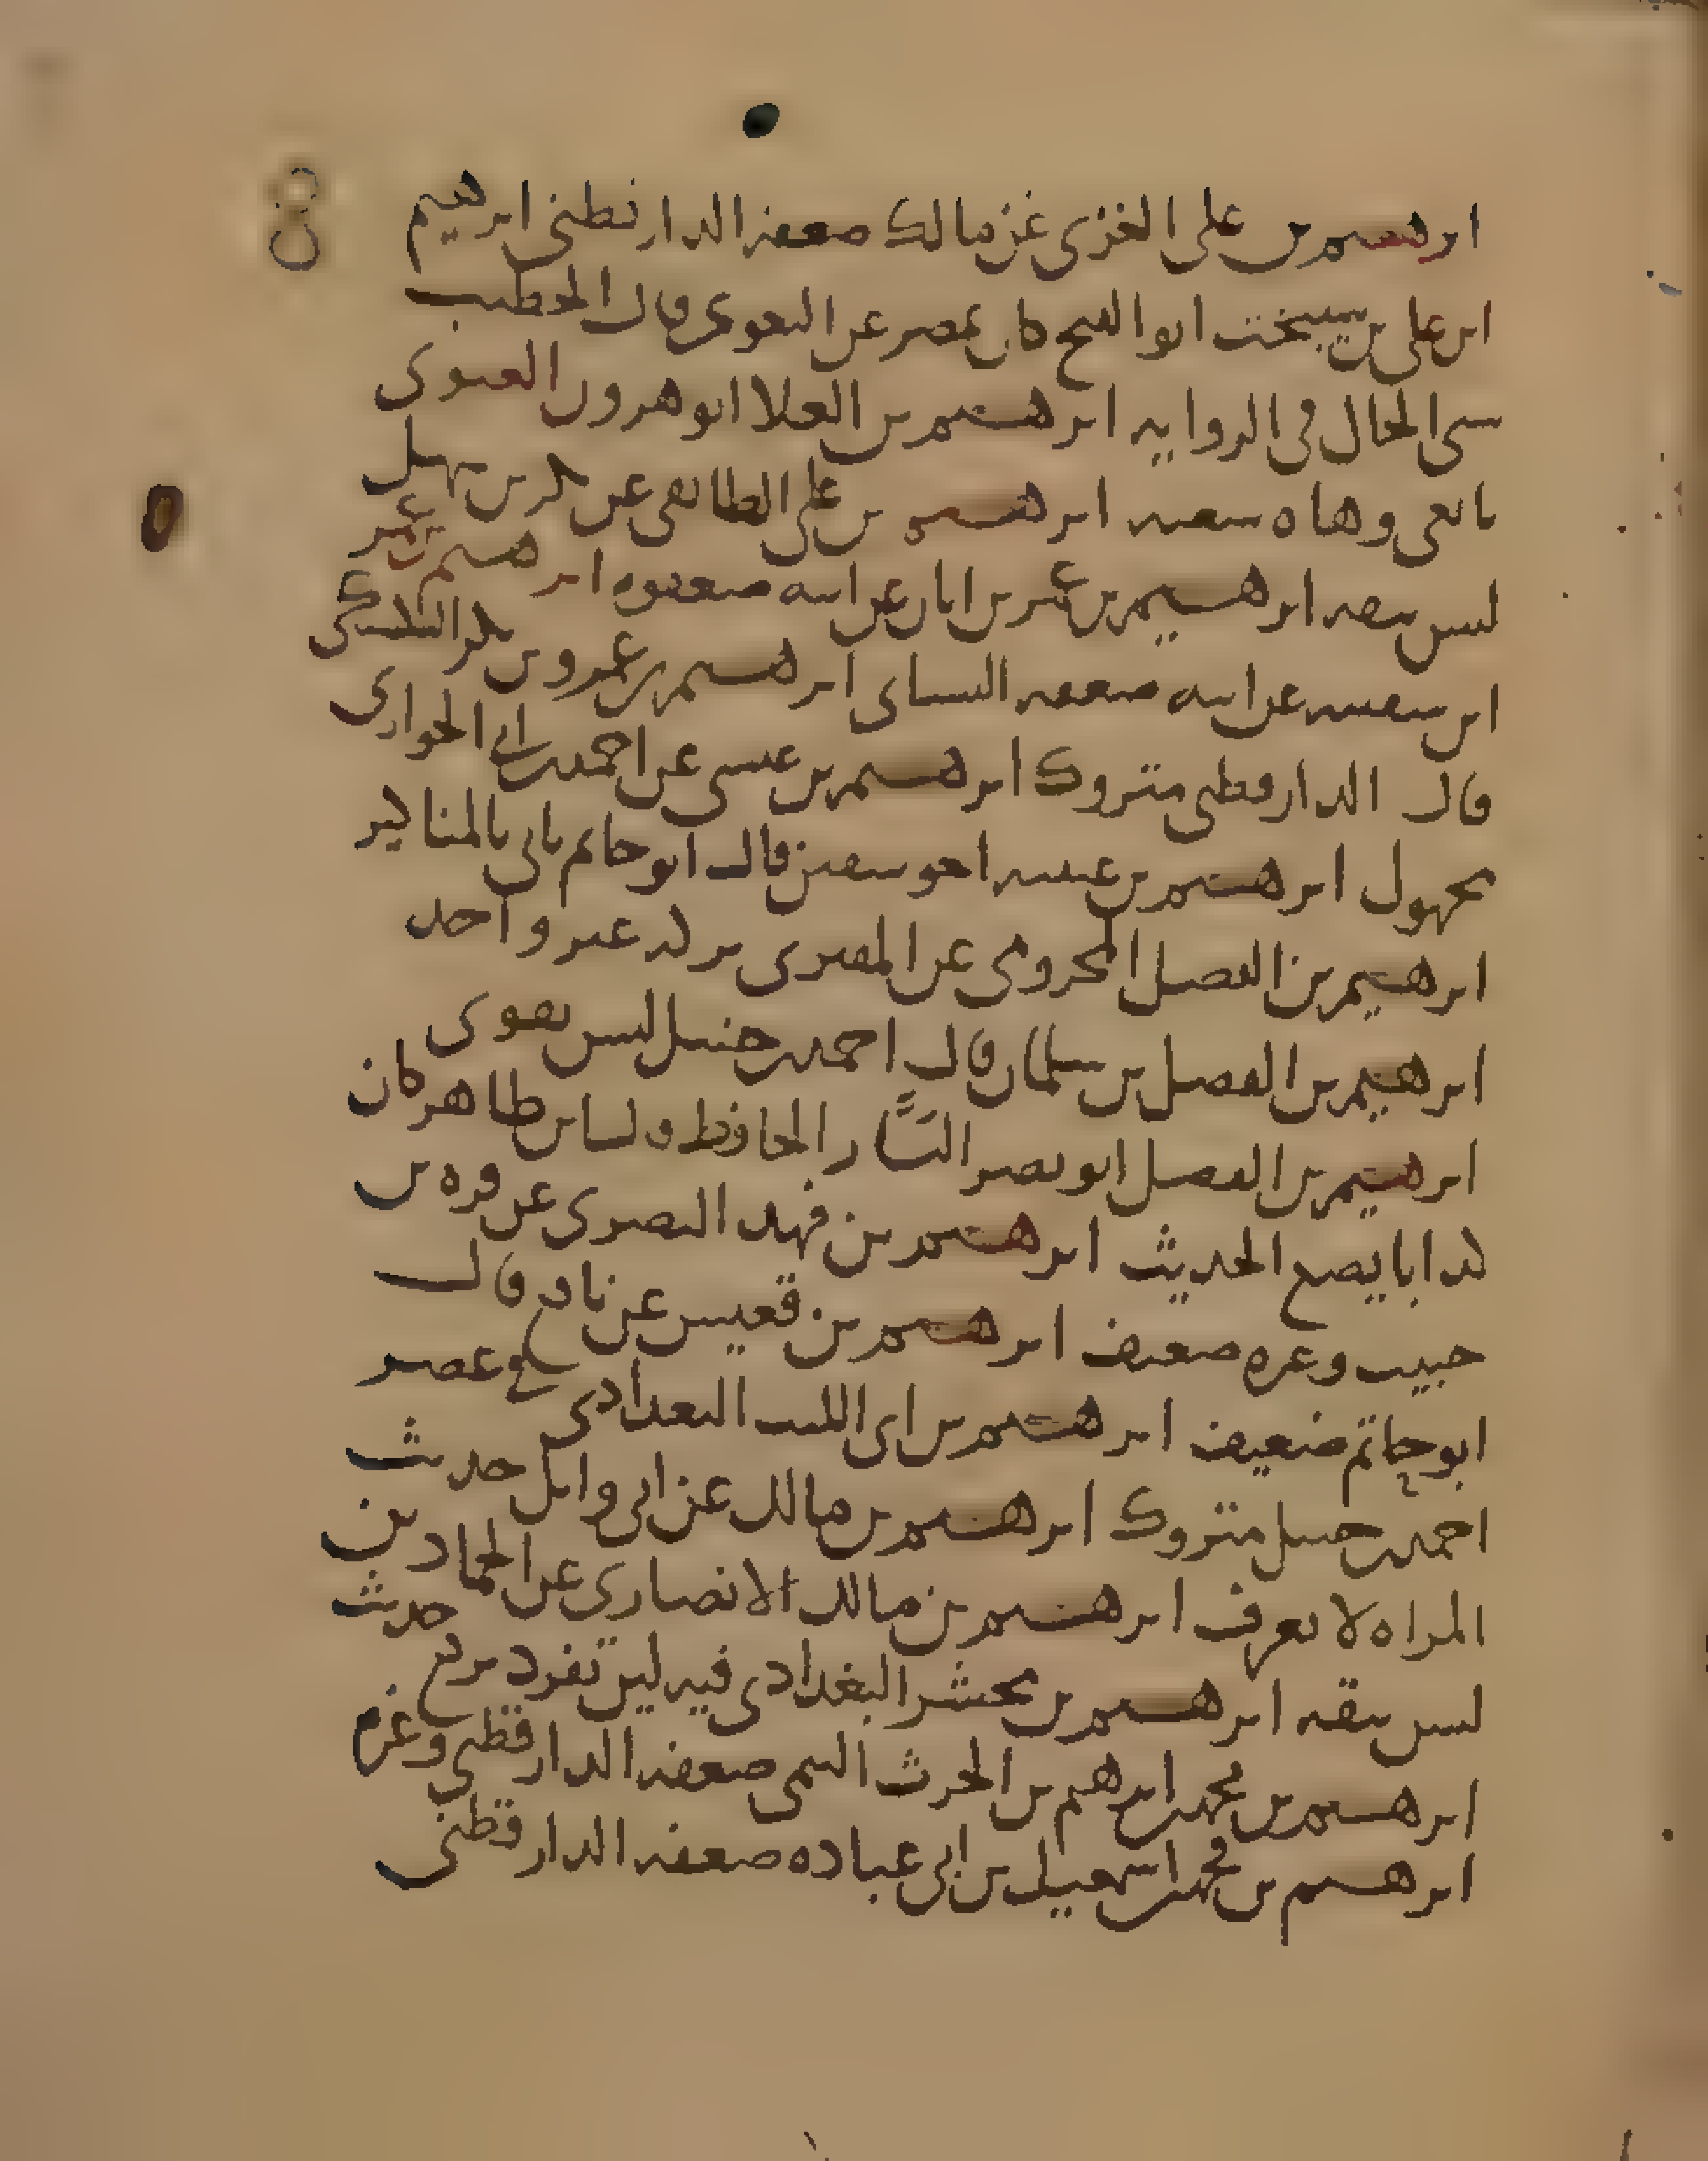 ابرهيم بن علي الغزي عن مالك ضعفه الدارقطني ابرهيم
ابن علي بن سيبخت ابو الفتح كان بمصر عن البغوي قال الخطيب
سيى الحال في الروايه ابرهيم بن العلا ابو هرون الغنوي
تابعي وهاه شعبه ابرهيم بن علي الطائفي عن بن سهل
ليس بثقه ابرهيم بن عمر بن ابان عن ابيه ضعفوه ابرهيم بن عمر
ابن سفينه عن ابيه ضعفه النساى ابرهيم بن عمرو بن بكر السكسكي
قال الدارقطني متروك ابرهيم بن عيسى عن احمد بن ابي الحواري
مجهول ابرهيم بن عيينه اخو سفين قال ابو حاتم ياتي بالمناكير
ابرهيم بن الفضل المخزومي عن المقبري تركه غير واحد
ابرهيم بن الفضل بن سلمان قال احمد بن حنبل ليس بقوي
ابرهيم بن الفضل ابو نصر البئار الحافظ قال ابن طاهر كان
كذابا يضع الحديث ابرهيم بن فهد البصري عن قره بن
حبيب وغيره ضعيف ابرهيم بن قعيس عن نافع قال
ابو حاتم ضعيف ابرهيم بن ابي الليث البغدادي عصر
احمد بن حنبل متروك ابرهيم بن مالك عن ابي وائل حديث
المراه لا يعرف ابرهيم بن مالك الانصاري عن الحمادين
ليس بثقه ابرهيم بن مجشر البغدادي فيه لين تفرد برفع حديث
ابرهيم بن محمد بن ابرهيم بن الحرث التيمي ضعفه الدارقطني وغيره
ابرهيم بن محمد بن اسمعيل بن ابي عباده ضعفه الدارقطني